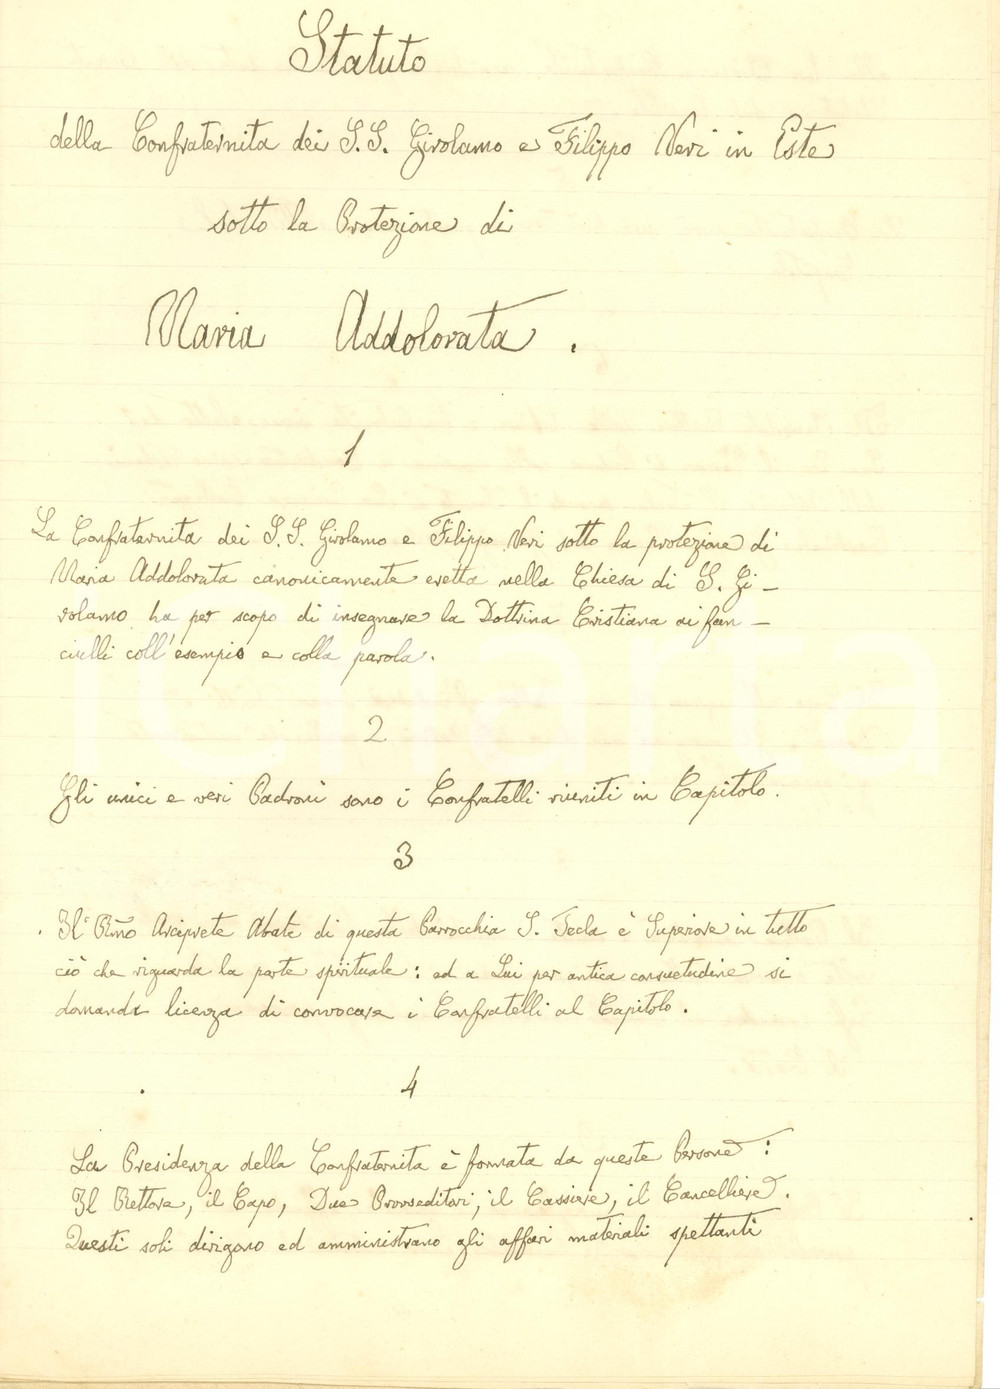 Statuto
della Confraternita dei S.S. Girolamo e Filippo Neri in Este
sotto la Protezione di
Maria Addolorata.
1
La Confraternita dei S.S. Girolamo e Filippo Neri sotto la protezione di
Maria Addolorata canonicamente eretta nella Chiesa di S. Gi-
rolamo ha per scopo di insegnare la Dottrina Cristiana ai fan-
ciulli coll'esempio e colla parola.
2
Gli unici e veri Padroni sono i Confratelli riuniti in Capitolo.
3
Il Rmo Arciprete Abate di questa Parrocchia S. Tecla è Superiore in tutto
ciò che riguarda la parte spirituale: ed a Lui per antica consuetudine si
domanda licenza di convocare i Confratelli al Capitolo.
4
La Presidenza della Confraternita è formata da queste Persone:
Il Rettore, il Capo, Due Provveditori, il Cassiere, il Cancelliere.
Questi soli dirigono ed amministrano gli affari materiali spettanti